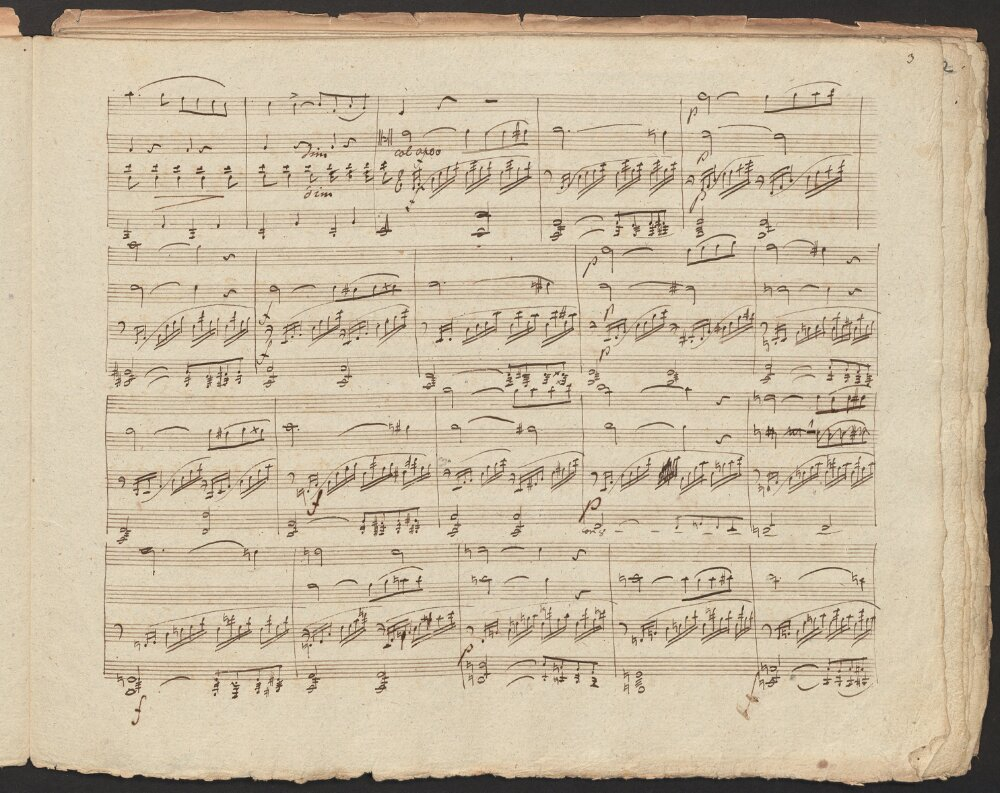 3
2.
p
dim
col arco
p
dim
f
p
p
f
p
f
p
f
p
f
p
f